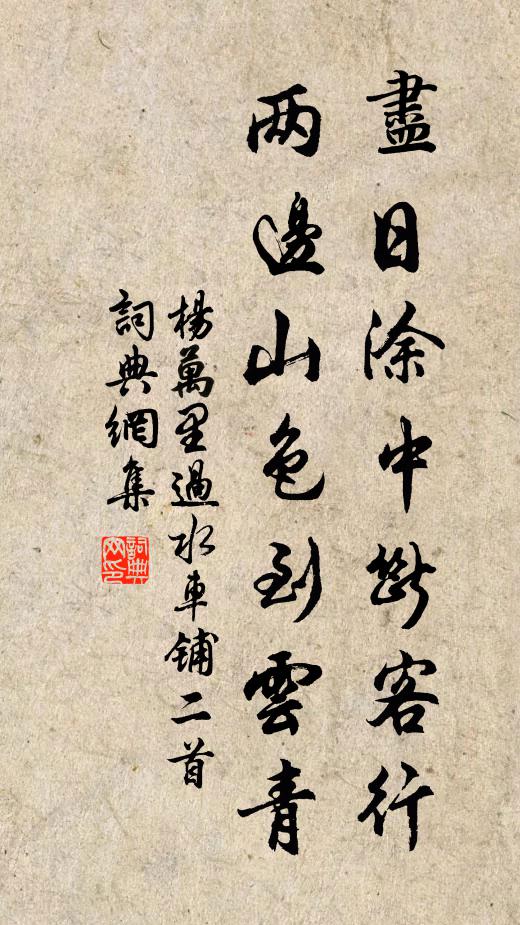 盡日涂中斷客行
两邊山色到雲青
楊萬里過水車铺二首
詞典網集
詞典網印